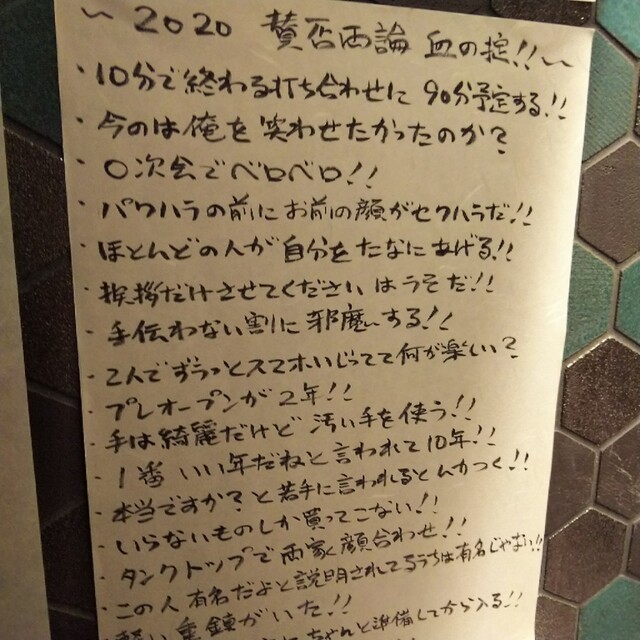 ~ 2020 賛否両論 血の掟!! ~
・10分で終わる打ち合わせに 90分予定する!!
・今のは俺を笑わせたかったのか?
・〇次会でベロベロ!!
・パワハラの前にお前の顔がセクハラだ!!
・ほとんどの人が自分をたなにあげる!!
・挨拶だけさせてください はうそだ!!
・手伝わない割に邪魔〜する!!
・2人でずうっとスマホいじってて何が楽しい?
・プレオープンが2年!!
・手は綺麗だけど 汚い手を使う!!
・1番 いい年だねと言われて10年!!
・本当ですか?と若手に言われるとムカつく!!
・いらないものしか買ってこない!!
・タンクトップで両家顔合わせ!!
・この人有名だよと説明されてるうちは有名じゃない!!
・軽い重鎮がいた!!
ちゃんと準備してから入る!!